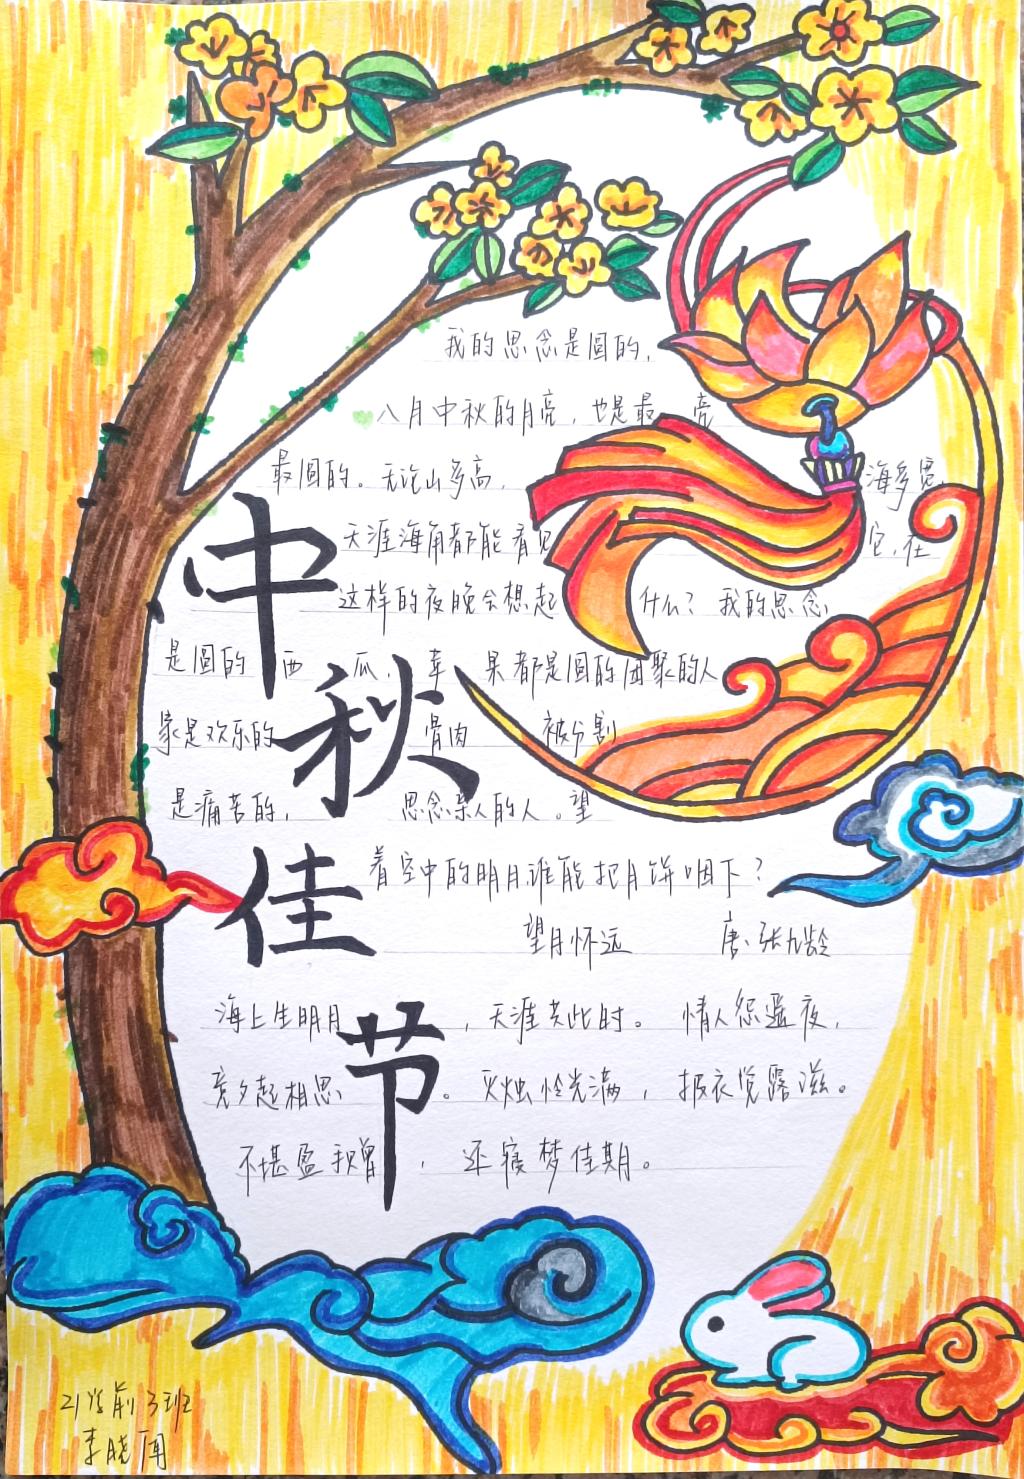 我的思念是圆的，
八月中秋的月亮，也是最 亮
最圆的。无论山多高， 海多宽，
天涯海角都能看见 它，在
这样的夜晚会想起 什么？ 我的思念
是圆的 西 瓜， 苹 果都是圆的团聚的人
家是欢乐的 骨肉 被分割
是痛苦的， 思念亲人的人。望
着空中的明月谁能把月饼咽下？
中秋佳节
望月怀远 唐、张九龄
海上生明月 ，天涯共此时。 情人怨遥夜，
竟夕起相思 。灭烛怜光满， 披衣觉露滋。
不堪盈 赠 ， 还寝梦佳期。
21学前3班
李晓